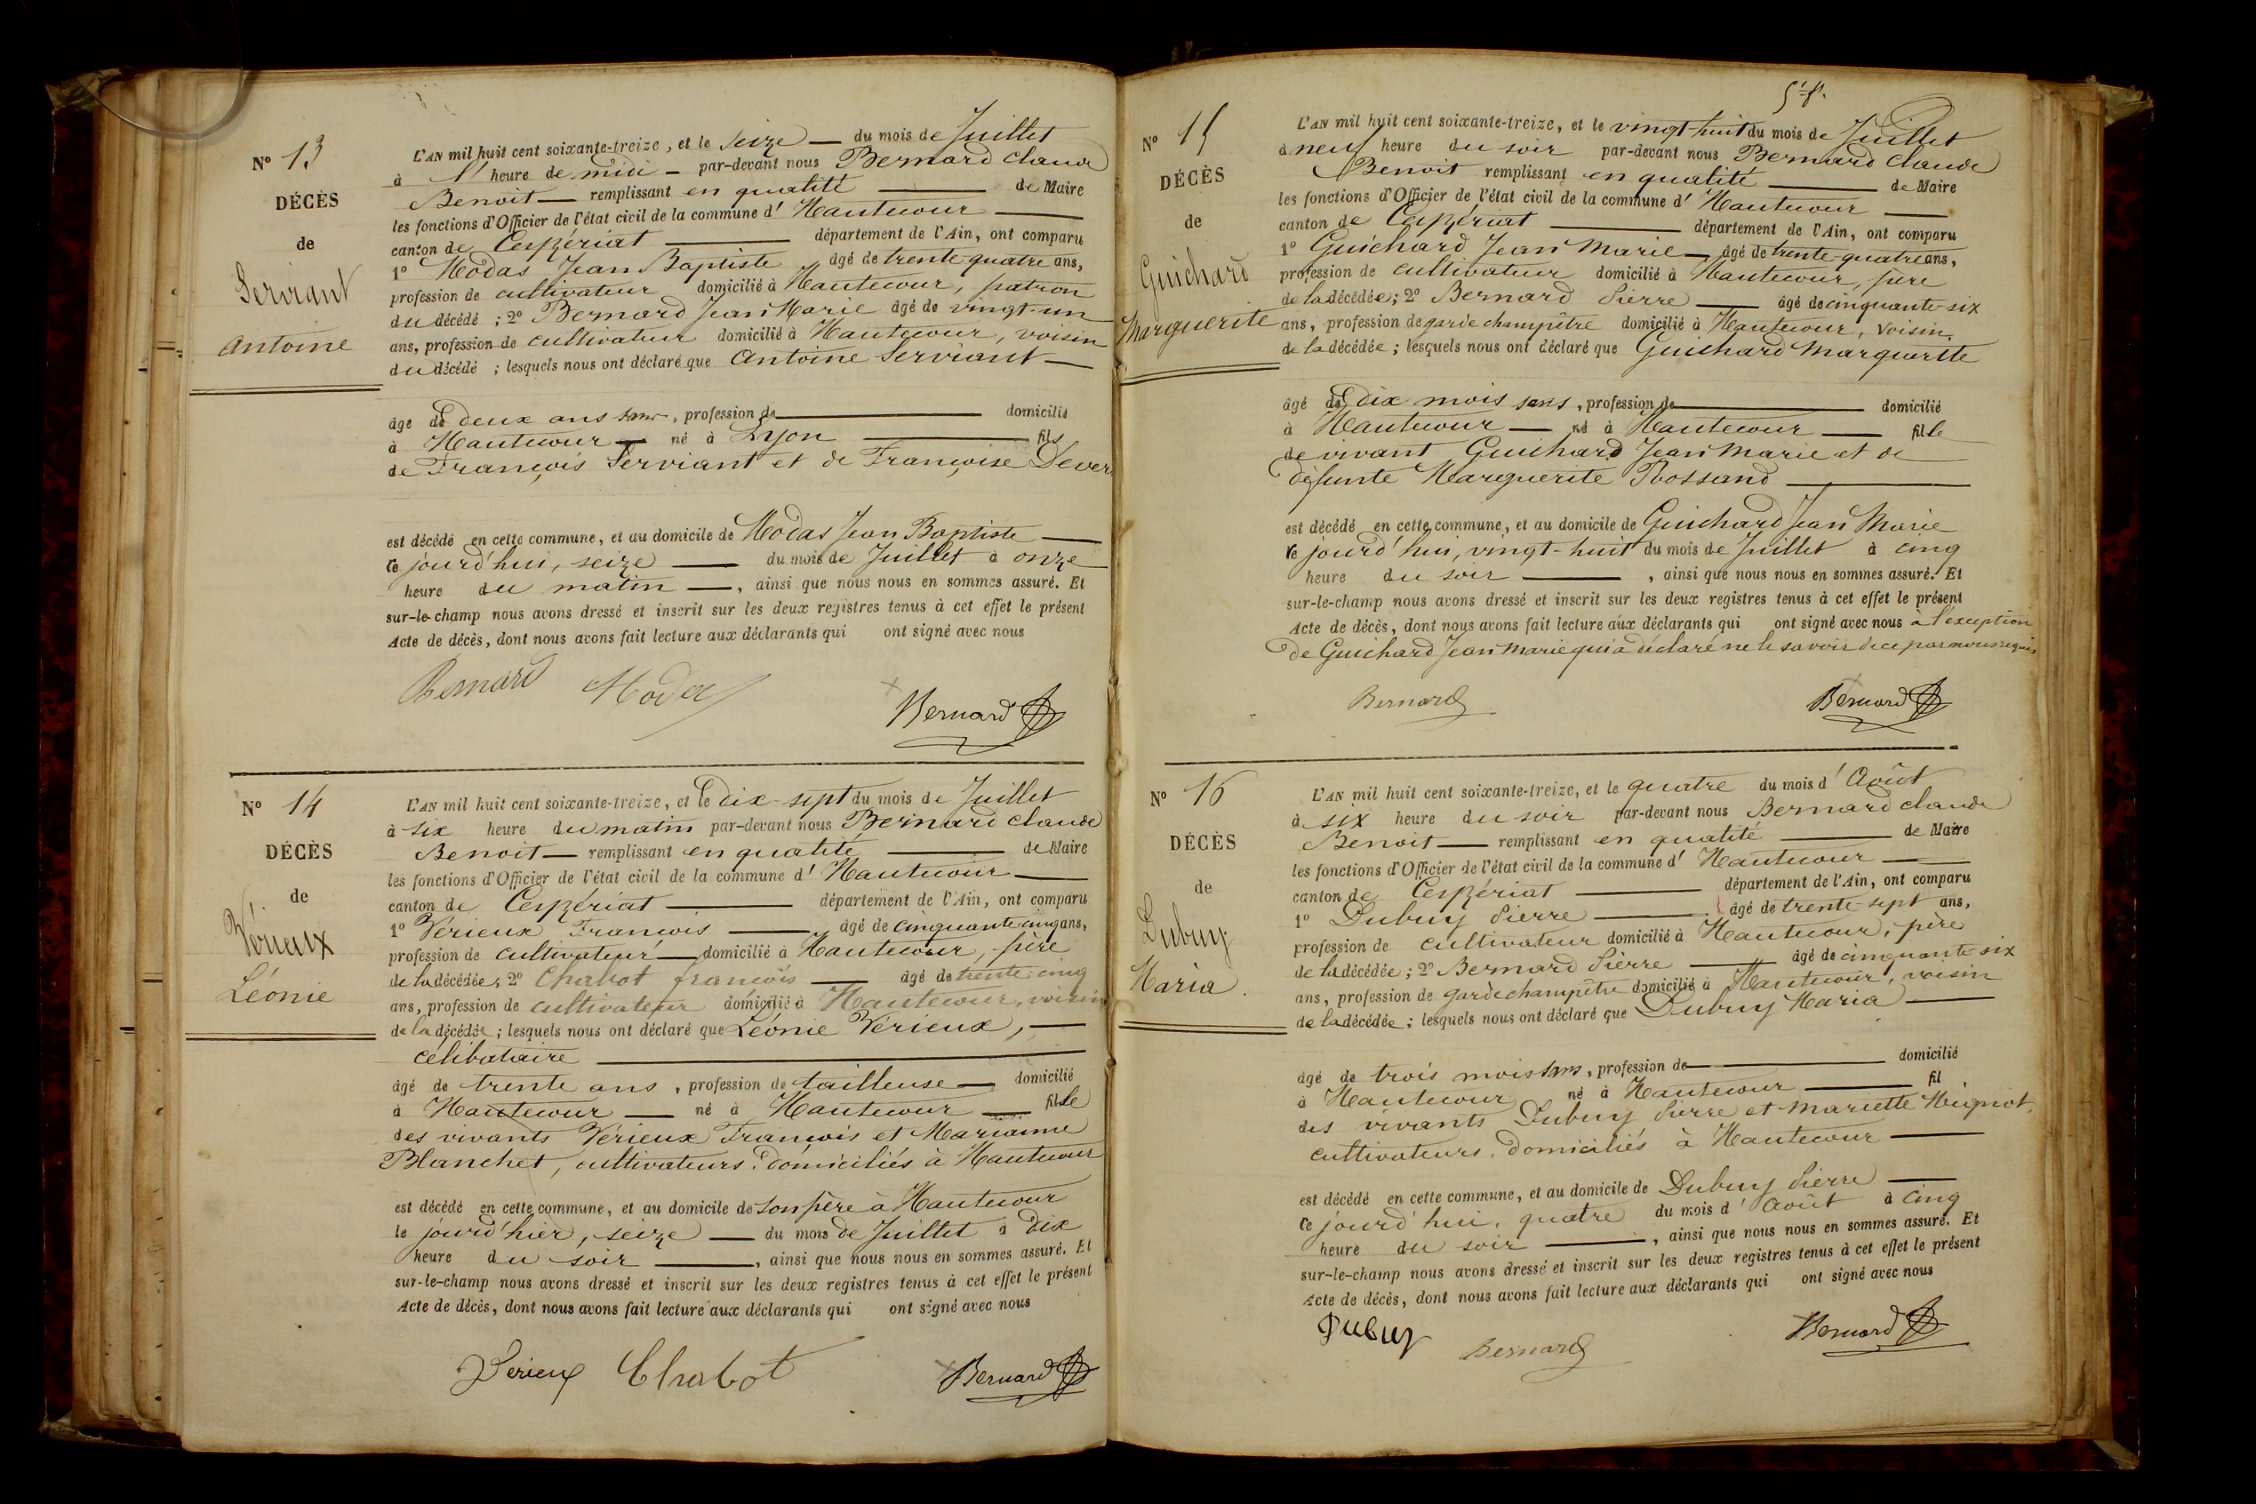 N° 13
DÉCÈS
de
Serviant
Antoine
L'AN mil huit cent soixante-treize, et le Seize du mois de Juillet
à heure de midi par-devant nous Bernard Claude
Benoit remplissant en qualité de Maire
les fonctions d'Officier de l'état civil de la commune d' Hautecour
canton de Ceyzériat département de l'Ain, ont comparu
1° Modas Jean Baptiste âgé de trente quatre ans,
profession de cultivateur domicilié à Hautecour, patron
du décédé ; 2° Bernard Jean Marie âgé de vingt-un
ans, profession de cultivateur domicilié à Hautecour, voisin
du décédé ; lesquels nous ont déclaré que Antoine Serviant
âgé de deux ans sans, profession de domicilié
à Hautecour né à Lyon fils
de François Serviant et de Françoise
est décédé en cette commune, et au domicile de Modas Jean Baptiste
ce jourd'hui, seize du mois de Juillet à onze
heure du matin, ainsi que nous nous en sommes assuré. Et
sur-le-champ nous avons dressé et inscrit sur les deux registres tenus à cet effet le présent
Acte de décès, dont nous avons fait lecture aux déclarants qui ont signé avec nous
Bernard Modas Bernard
N° 14
DÉCÈS
de
Vérieux
Léonie
L'AN mil huit cent soixante-treize, et le Dix-sept du mois de Juillet
à six heure du matin par-devant nous Bernard Claude
Benoit remplissant en qualité de Maire
les fonctions d'Officier de l'état civil de la commune d' Hautecour
canton de Ceyzériat département de l'Ain, ont comparu
1° Vérieux François âgé de cinquante cinq ans,
profession de cultivateur domicilié à Hautecour, père
de la décédée ; 2° Chabot françois âgé de trente cinq
ans, profession de cultivateur domicilié à Hautecour, voisin
de la décédée ; lesquels nous ont déclaré que Léonie Vérieux,
célibataire
âgé de trente ans, profession de tailleuse domicilié
à Hautecour né à Hautecour fille
des vivants Vérieux François et Marianne
Blanchet, cultivateurs domiciliés à Hautecour
est décédé en cette commune, et au domicile de son père à Hautecour
le jourd'hier, seize du mois de Juillet à dix
heure du soir, ainsi que nous nous en sommes assuré. Et
sur-le-champ nous avons dressé et inscrit sur les deux registres tenus à cet effet le présent
Acte de décès, dont nous avons fait lecture aux déclarants qui ont signé avec nous
Verieux Chabot Bernard
N° 15
DÉCÈS
de
Guichard
Marguerite
L'AN mil huit cent soixante-treize, et le vingt-huit du mois de Juillet
à neuf heure du soir par-devant nous Bernard Claude
Benoit remplissant en qualité de Maire
les fonctions d'Officier de l'état civil de la commune d' Hautecour
canton de Ceyzériat département de l'Ain, ont comparu
1° Guichard Jean Marie âgé de trente-quatre ans,
profession de cultivateur domicilié à Hautecour, père
de la décédée ; 2° Bernard Pierre âgé de cinquante-six
ans, profession de garde champêtre domicilié à Hautecour, voisin
de la décédée ; lesquels nous ont déclaré que Guichard Marguerite
âgé de dix mois sans, profession de domicilié
à Hautecour né à Hautecour fille
de vivant Guichard Jean Marie et de
défunte Marguerite Rossand
est décédé en cette commune, et au domicile de Guichard Jean Marie
ce jourd'hui, vingt-huit du mois de Juillet à cinq
heure du soir, ainsi que nous nous en sommes assuré. Et
sur-le-champ nous avons dressé et inscrit sur les deux registres tenus à cet effet le présent
Acte de décès, dont nous avons fait lecture aux déclarants qui ont signé avec nous à l'exception
de Guichard Jean Marie qui a déclaré ne le savoir de ce par nous requis
Bernard Bernard
N° 16
DÉCÈS
de
Dubuy
Maria
L'AN mil huit cent soixante-treize, et le quatre du mois d' Août
à six heure du soir par-devant nous Bernard Claude
Benoit remplissant en qualité de Maire
les fonctions d'Officier de l'état civil de la commune d' Hautecour
canton de Ceyzériat département de l'Ain, ont comparu
1° Dubuy Pierre âgé de trente-sept ans,
profession de cultivateur domicilié à Hautecour, père
de la décédée ; 2° Bernard Pierre âgé de cinquante-six
ans, profession de garde champêtre domicilié à Hautecour, voisin
de la décédée ; lesquels nous ont déclaré que Dubuy Maria
âgé de trois mois sans, profession de domicilié
à Hautecour né à Hautecour fil
des vivants Dubuy Pierre et Mariette Mignot,
cultivateurs, domiciliés à Hautecour
est décédé en cette commune, et au domicile de Dubuy Pierre
ce jourd'hui, quatre du mois d' Août à cinq
heure du soir, ainsi que nous nous en sommes assuré. Et
sur-le-champ nous avons dressé et inscrit sur les deux registres tenus à cet effet le présent
Acte de décès, dont nous avons fait lecture aux déclarants qui ont signé avec nous
Dubuy Bernard Bernard